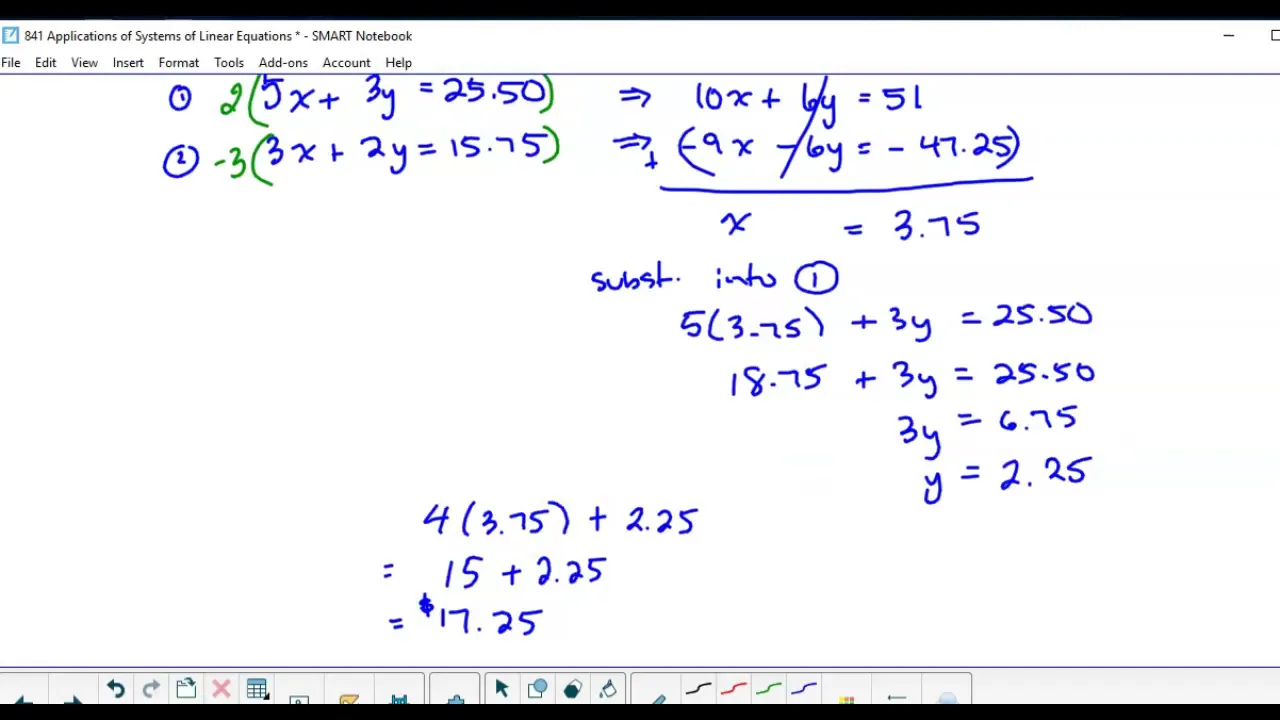 841 Applications of Systems of Linear Equations * - SMART Notebook
File Edit View Insert Format Tools Add-ons Account Help
① 2(5x + 3y = 25.50) ⇒ 10x + 6y = 51
② -3(3x + 2y = 15.75) ⇒ + (-9x - 6y = - 47.25)
x = 3.75
subst. into ①
5(3.75) + 3y = 25.50
18.75 + 3y = 25.50
3y = 6.75
y = 2.25
4(3.75) + 2.25
= 15 + 2.25
= $17.25